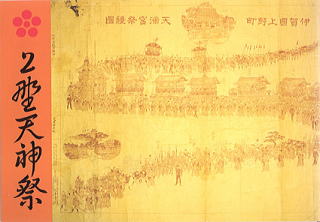 伊賀國上野町
天満宮祭禮圖
上野天神祭